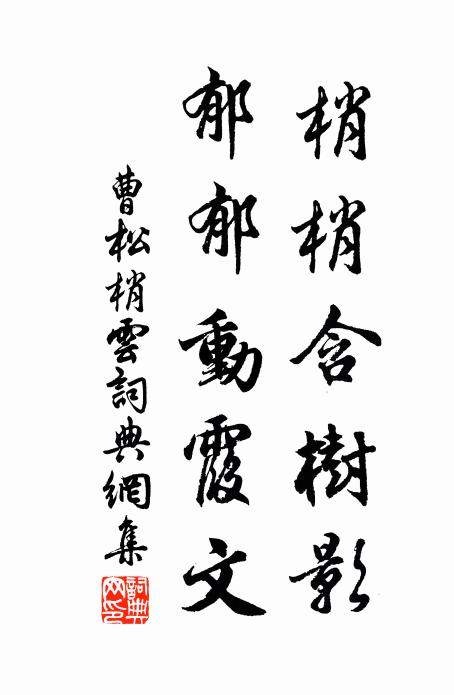 梢梢含樹影
郁郁動霞文
曹松梢雲詞典網集
詞典網印